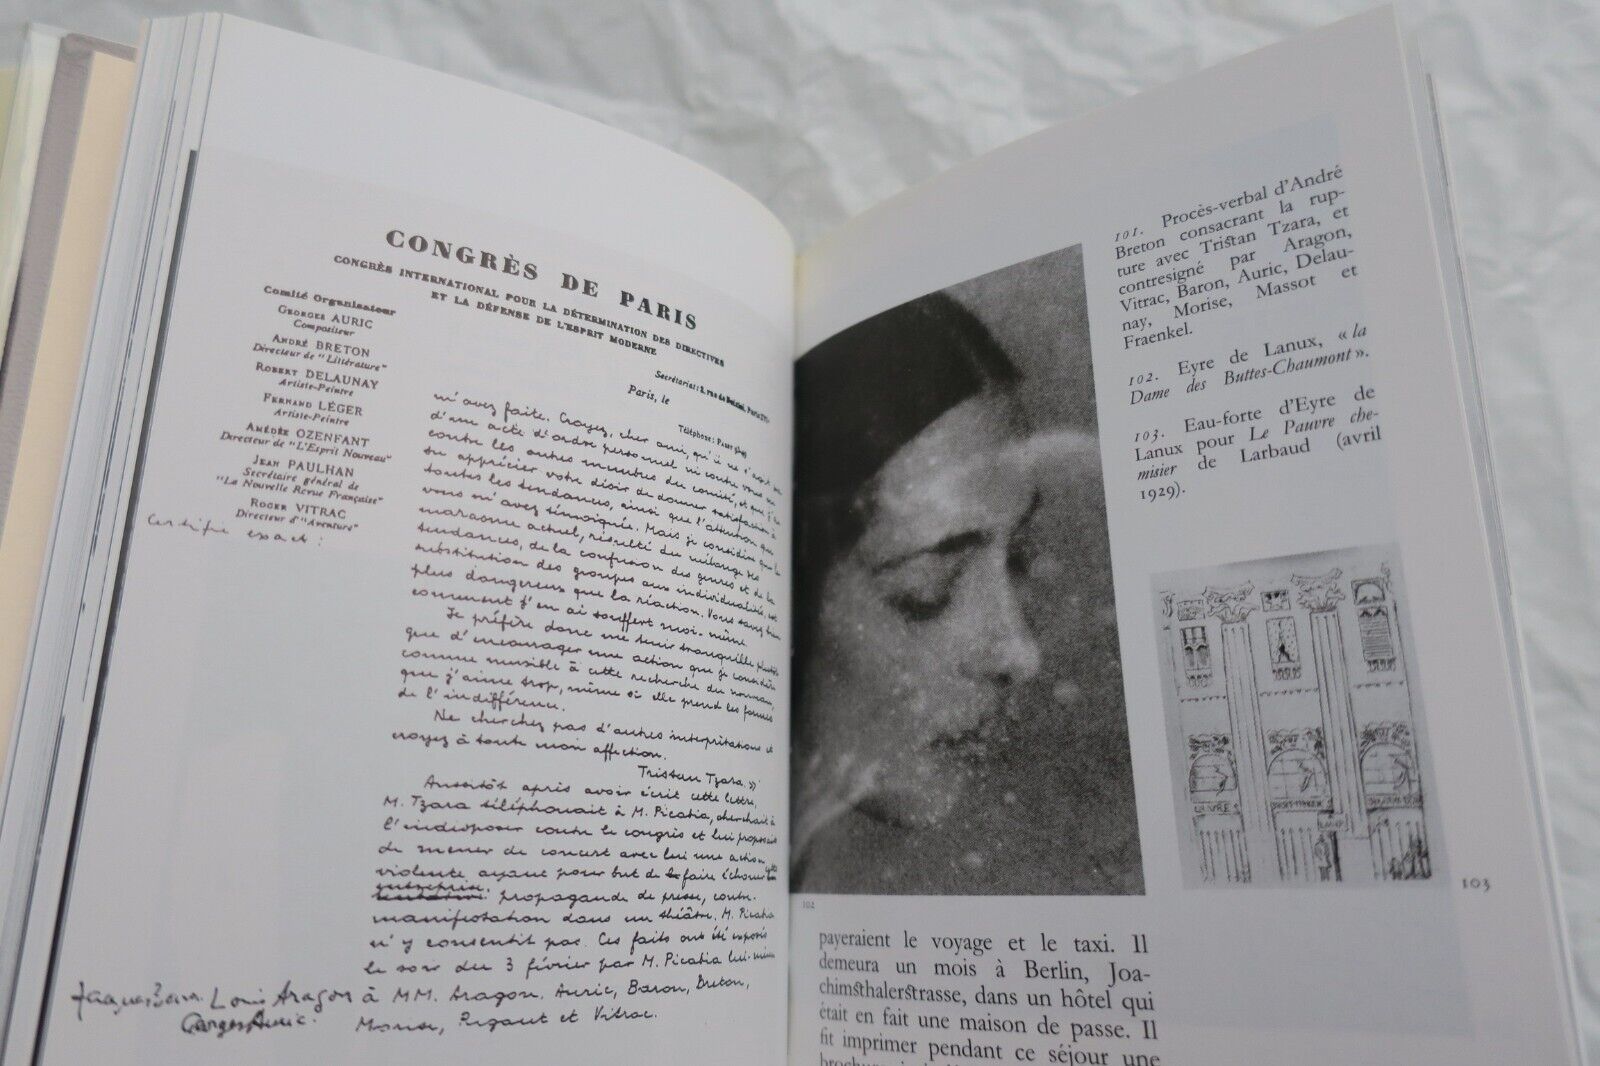 CONGRÈS DE PARIS
CONGRÈS INTERNATIONAL POUR LA DÉTERMINATION DES DIRECTIVES
ET LA DÉFENSE DE L'ESPRIT MODERNE
Comité Organisateur
GEORGES AURIC
Compositeur
ANDRÉ BRETON
Directeur de "Littérature"
ROBERT DELAUNAY
Artiste-Peintre
FERNAND LÉGER
Artiste-Peintre
AMÉDÉE OZENFANT
Directeur de "L'Esprit Nouveau"
JEAN PAULHAN
Secrétaire général de
"La Nouvelle Revue Française"
ROGER VITRAC
Directeur d'"Aventure"
Certifié exact :
Secrétariat : 2, rue de
Paris, le
Téléphone :
m'avez faite. Croyez, cher ami, qu'il ne s'agit pas
d'un acte d'ordre personnel ni contre vous ni
contre les autres membres du comité, et que j'ai
su apprécier votre désir de donner satisfaction à
toutes les tendances, ainsi que l'attention que
vous m'avez témoignée. Mais je considère que le
marasme actuel, résulté du mélange des
tendances, de la confusion des genres et de la
substitution des groupes aux individualités, est
plus dangereux que la réaction. Vous savez bien
comment j'en ai souffert moi-même.
Je préfère donc me tenir tranquille plutôt
que d'encourager une action que je considère
comme nuisible à cette recherche du nouveau,
que j'aime trop, même si elle prend les formes
de l'indifférence.
Ne cherchez pas d'autres interprétations et
croyez à toute mon affection.
Tristan Tzara. »
Aussitôt après avoir écrit cette lettre,
M. Tzara téléphonait à M. Picabia, cherchait à
l'indisposer contre le congrès et lui proposait
de mener de concert avec lui une action
violente ayant pour but de faire échouer cette
entreprise. propagande de presse, contre-
manifestation dans un théâtre. M. Picabia
n'y consentit pas. Ces faits ont été exposés
le soir du 3 février par M. Picabia lui-même
à MM. Aragon, Auric, Baron, Breton,
Morise, Rigaut et Vitrac.
Jacques Baron. Louis Aragon
Georges Auric.
101. Procès-verbal d'André
Breton consacrant la rup-
ture avec Tristan Tzara, et
contresigné par Aragon,
Vitrac, Baron, Auric, Delau-
nay, Morise, Massot et
Fraenkel.
102. Eyre de Lanux, « la
Dame des Buttes-Chaumont ».
103. Eau-forte d'Eyre de
Lanux pour Le Pauvre che-
misier de Larbaud (avril
1929).
103
102
payeraient le voyage et le taxi. Il
demeura un mois à Berlin, Joa-
chimsthalerstrasse, dans un hôtel qui
était en fait une maison de passe. Il
fit imprimer pendant ce séjour une